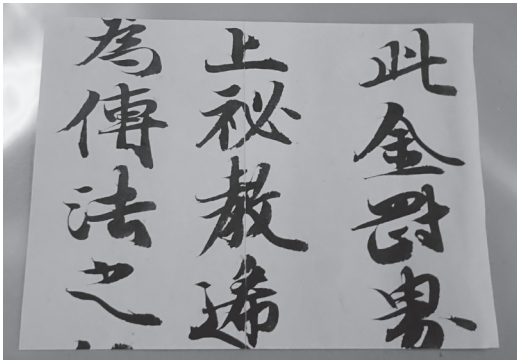 此金剛界
上祕教遞
為傳法之